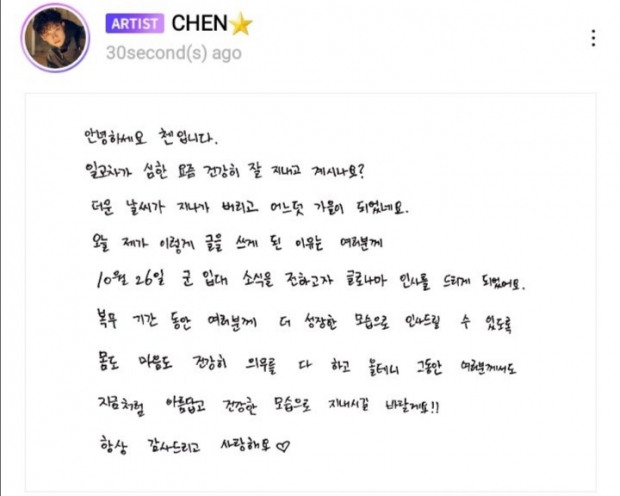 ARTIST CHEN⭐
30second(s) ago
안녕하세요 첸입니다.
일교차가 심한 요즘 건강히 잘 지내고 계시나요?
더운 날씨가 지나가 버리고 어느덧 가을이 되었네요.
오늘 제가 이렇게 글을 쓰게 된 이유는 여러분께
10월 26일 군 입대 소식을 전하고자 글로나마 인사를 드리게 되었어요.
복무 기간 동안 여러분께 더 성장한 모습으로 인사드릴 수 있도록
몸도 마음도 건강히 의무를 다 하고 올테니 그동안 여러분께서도
지금처럼 아름답고 건강한 모습으로 지내시길 바랄게요!!
항상 감사드리고 사랑해요♡